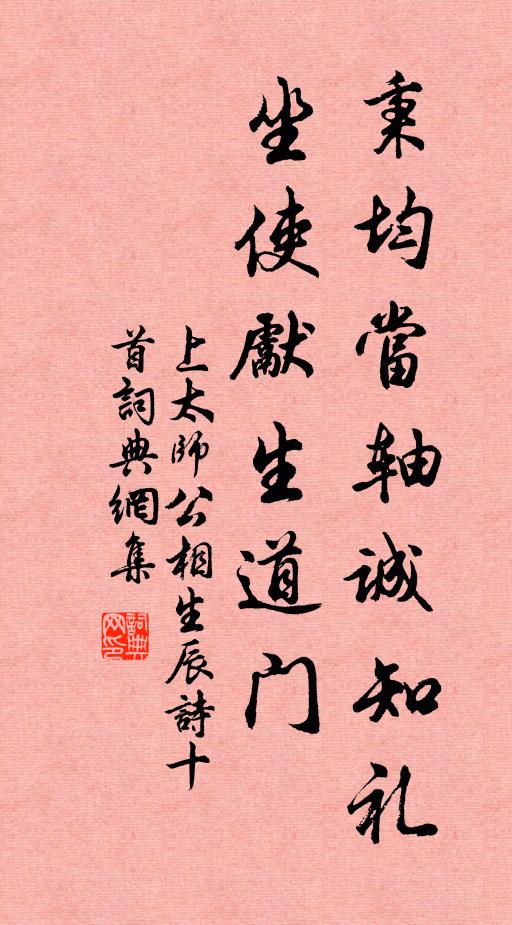 秉均當轴誠知礼
坐使獻生道门
上太師公相生辰詩十
首詞典網集
詞典网印